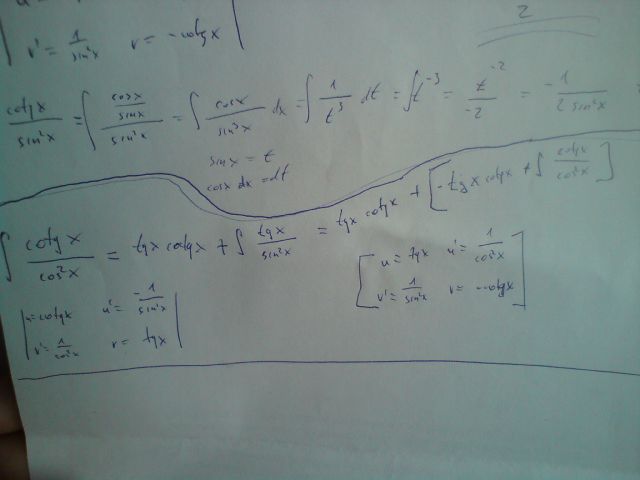 2
v' = 1/sin²x v = -cotgx
cotgx/sin²x = ∫ (cosx/sinx)/sin²x = ∫ cosx/sin³x dx = ∫ 1/t³ dt = ∫ t⁻³ = t⁻²/-2 = -1/2sin²x
sinx = t
cosx dx = dt
∫ cotgx/cos²x = tgx cotgx + ∫ tgx/sin²x = tgx cotgx + [-tgx cotgx + ∫ cotgx/cos²x]
u = cotgx u' = -1/sin²x
v' = 1/cos²x v = tgx
[u = tgx u' = 1/cos²x
v' = 1/sin²x v = -cotgx]